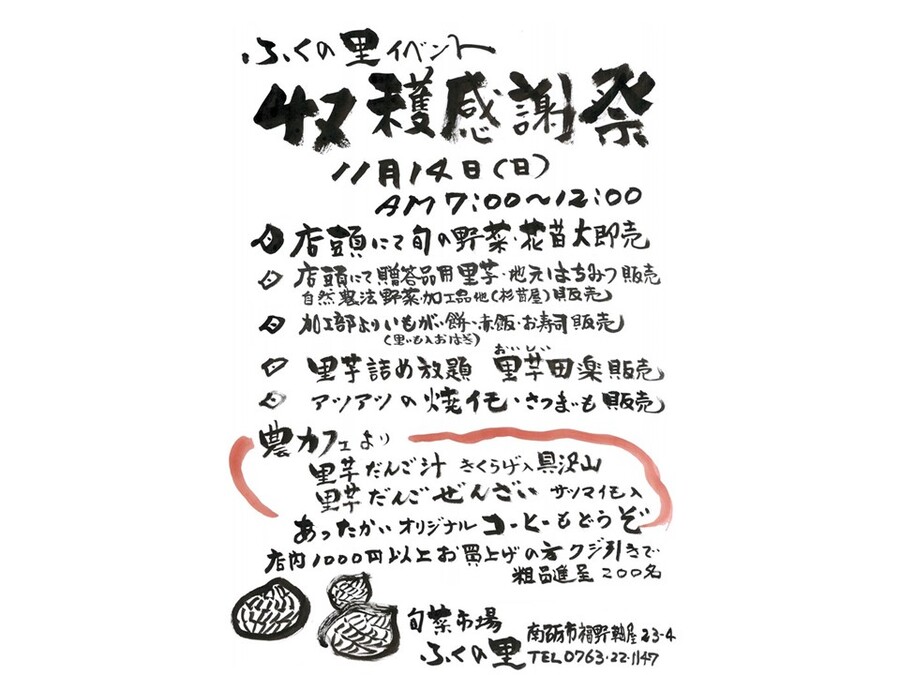 ふくの里イベント
収穫感謝祭
11月14日(日)
AM 7:00〜12:00
店頭にて旬の野菜・花苗大即売
店頭にて贈答品用里芋・地元はちみつ販売
自然製法野菜・加工品他(杉苗屋)販売
加工部よりいもがい餅・赤飯・お寿司販売
(里いも入おはぎ)
おいしい
里芋詰め放題 里芋田楽販売
アツアツの焼イモ・さつまいも販売
農カフェより
里芋だんご汁 きくらげ入具沢山
里芋だんごぜんざい サツマイモ入
あったかいオリジナルコーヒーもどうぞ
店内1000円以上お買上げの方クジ引きで
粗品進呈 200名
旬菜市場
ふくの里
南砺市福野軸屋23-4
TEL0763・22・1147